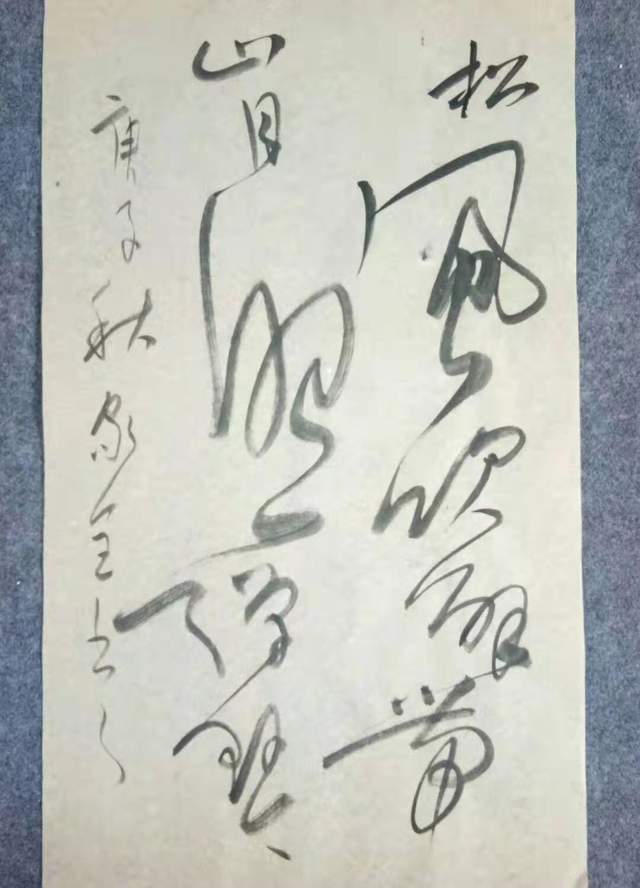 松风吹解带
山月照弹琴
庚子秋家全书